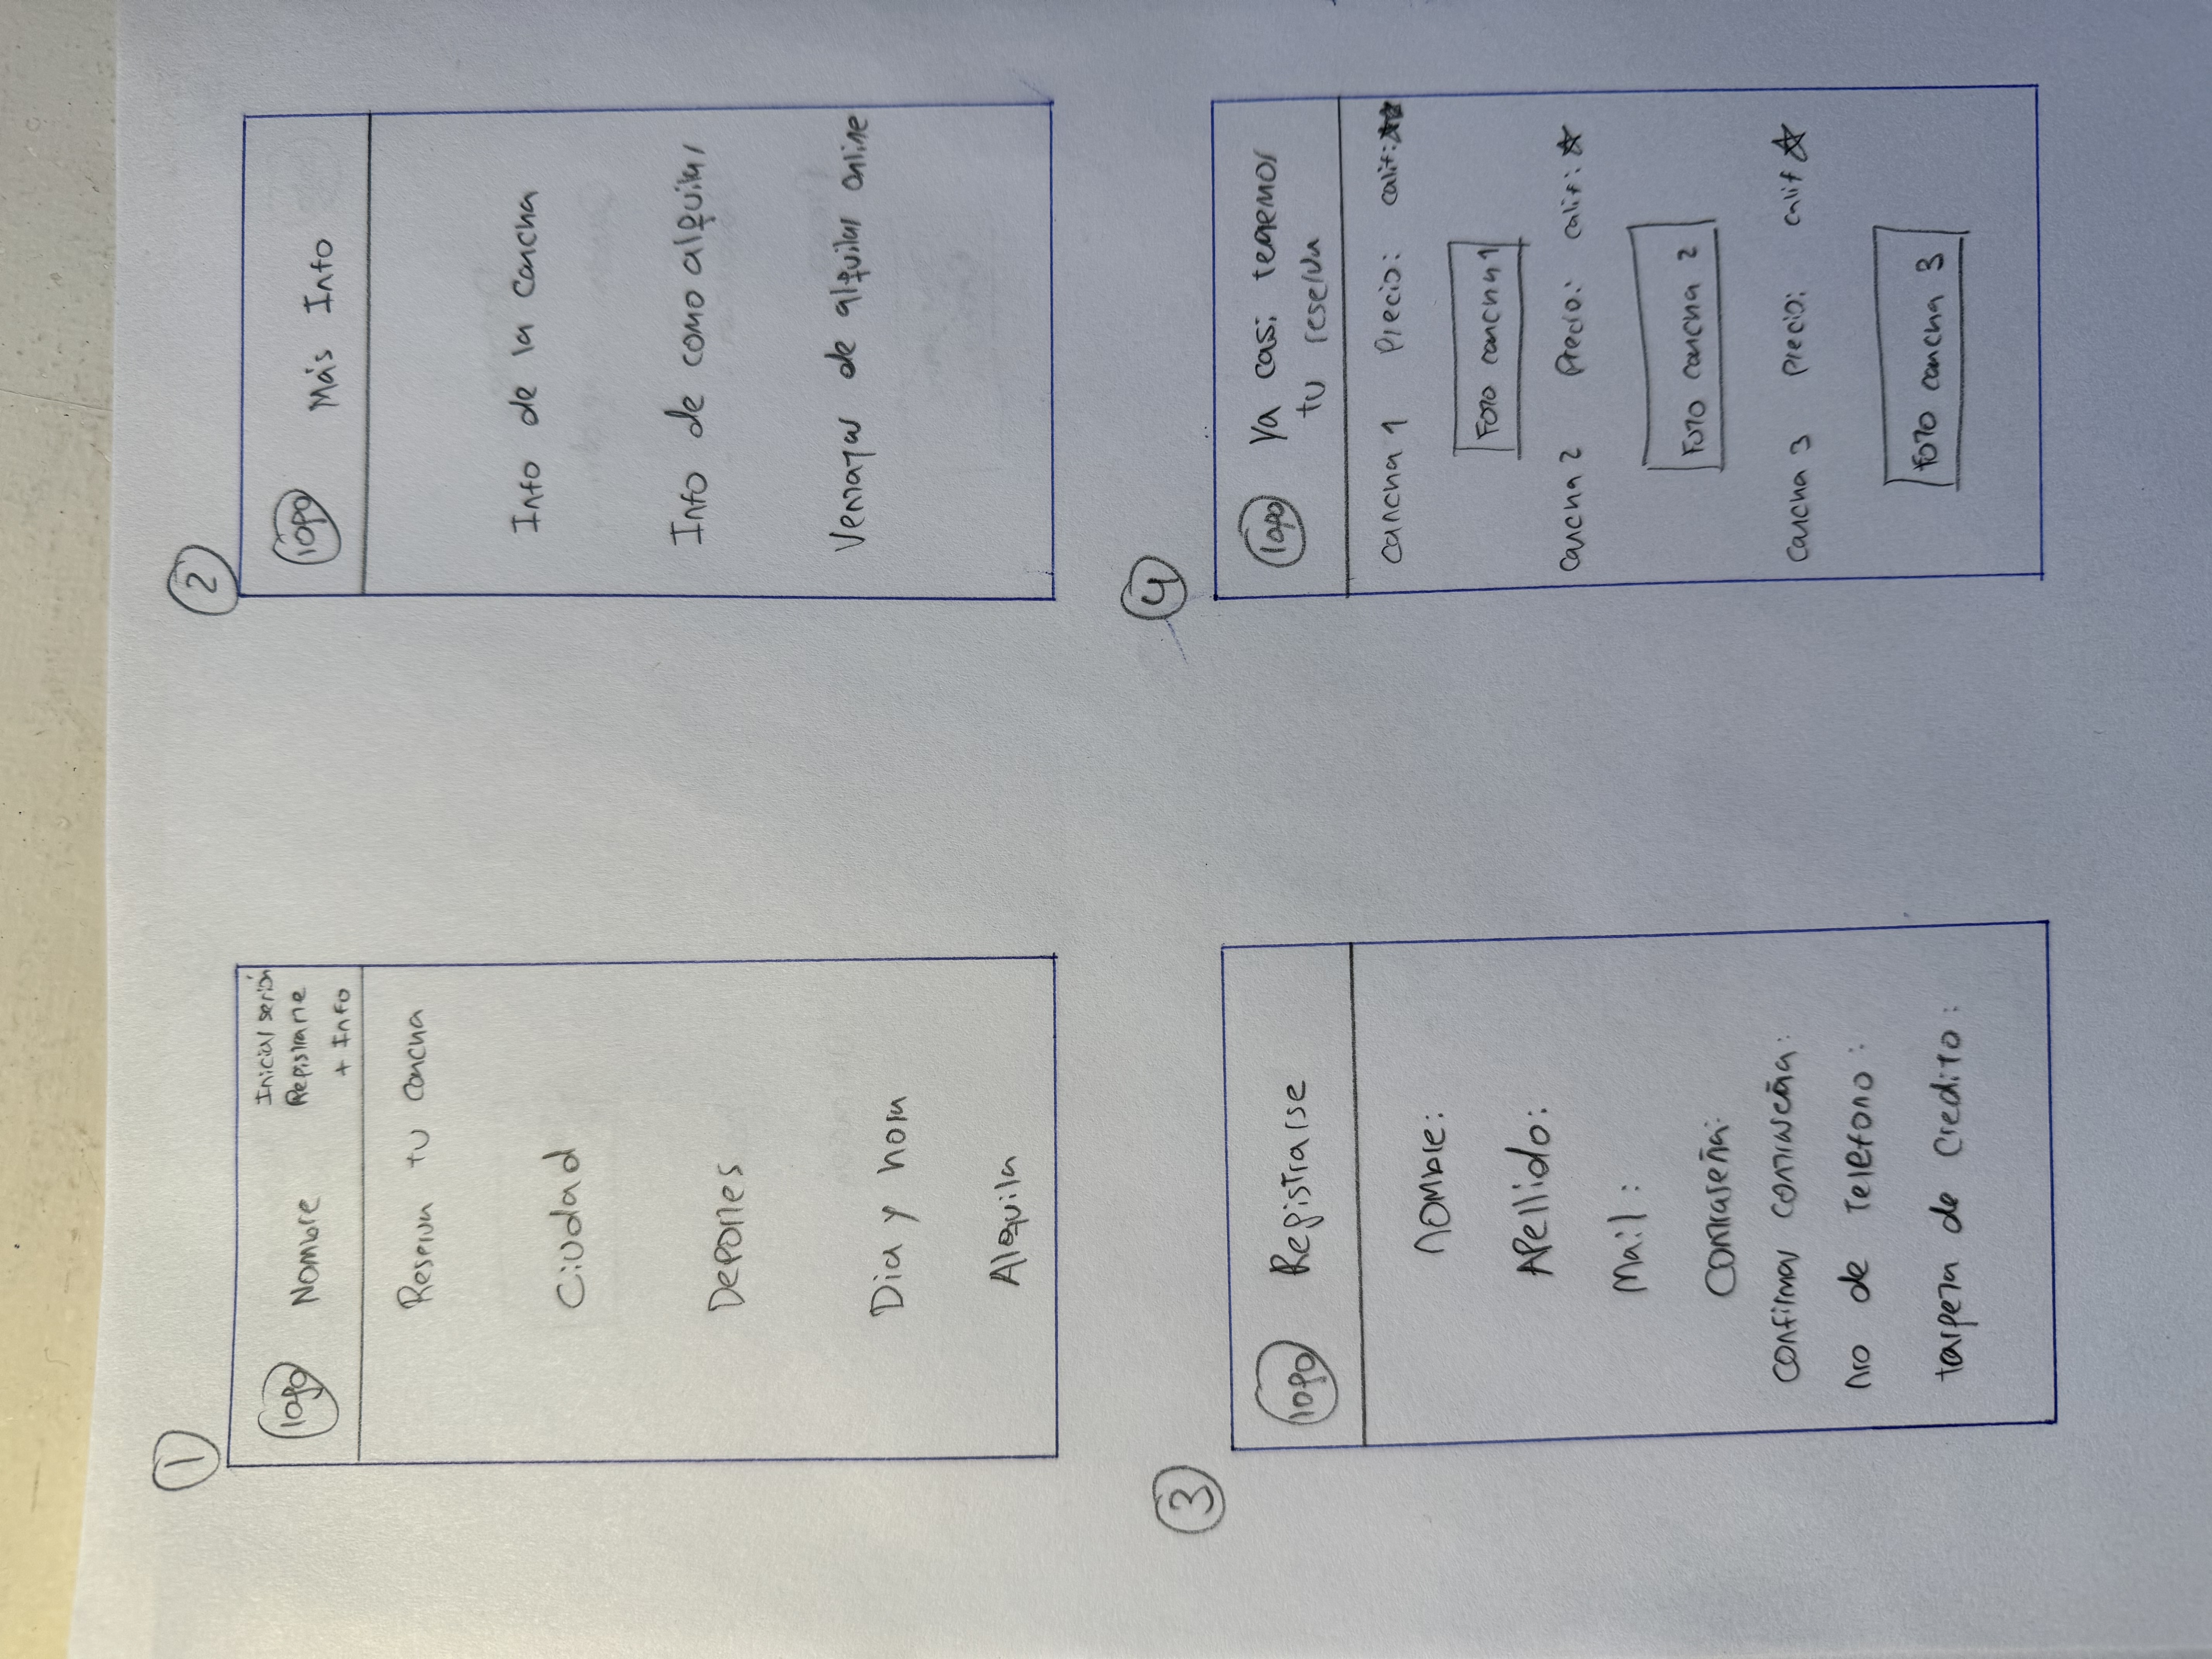 1
logo
Nombre
Iniciar sesión
Registrarse
+ Info
Reserva tu cancha
Ciudad
Deportes
Dia y hora
Alquila
2
logo
Más Info
Info de la cancha
Info de como alquilar
Ventajas de alquilar online
3
logo
Registrarse
Nombre:
Apellido:
Mail:
Contraseña:
confirmar contraseña:
nro de telefono:
tarjeta de credito:
4
logo
Ya casi tenemos
tu reserva
cancha 1 Precio: calif: ★★
Foto cancha 1
cancha 2 Precio: calif: ★
Foto cancha 2
cancha 3 Precio: calif ★
Foto cancha 3